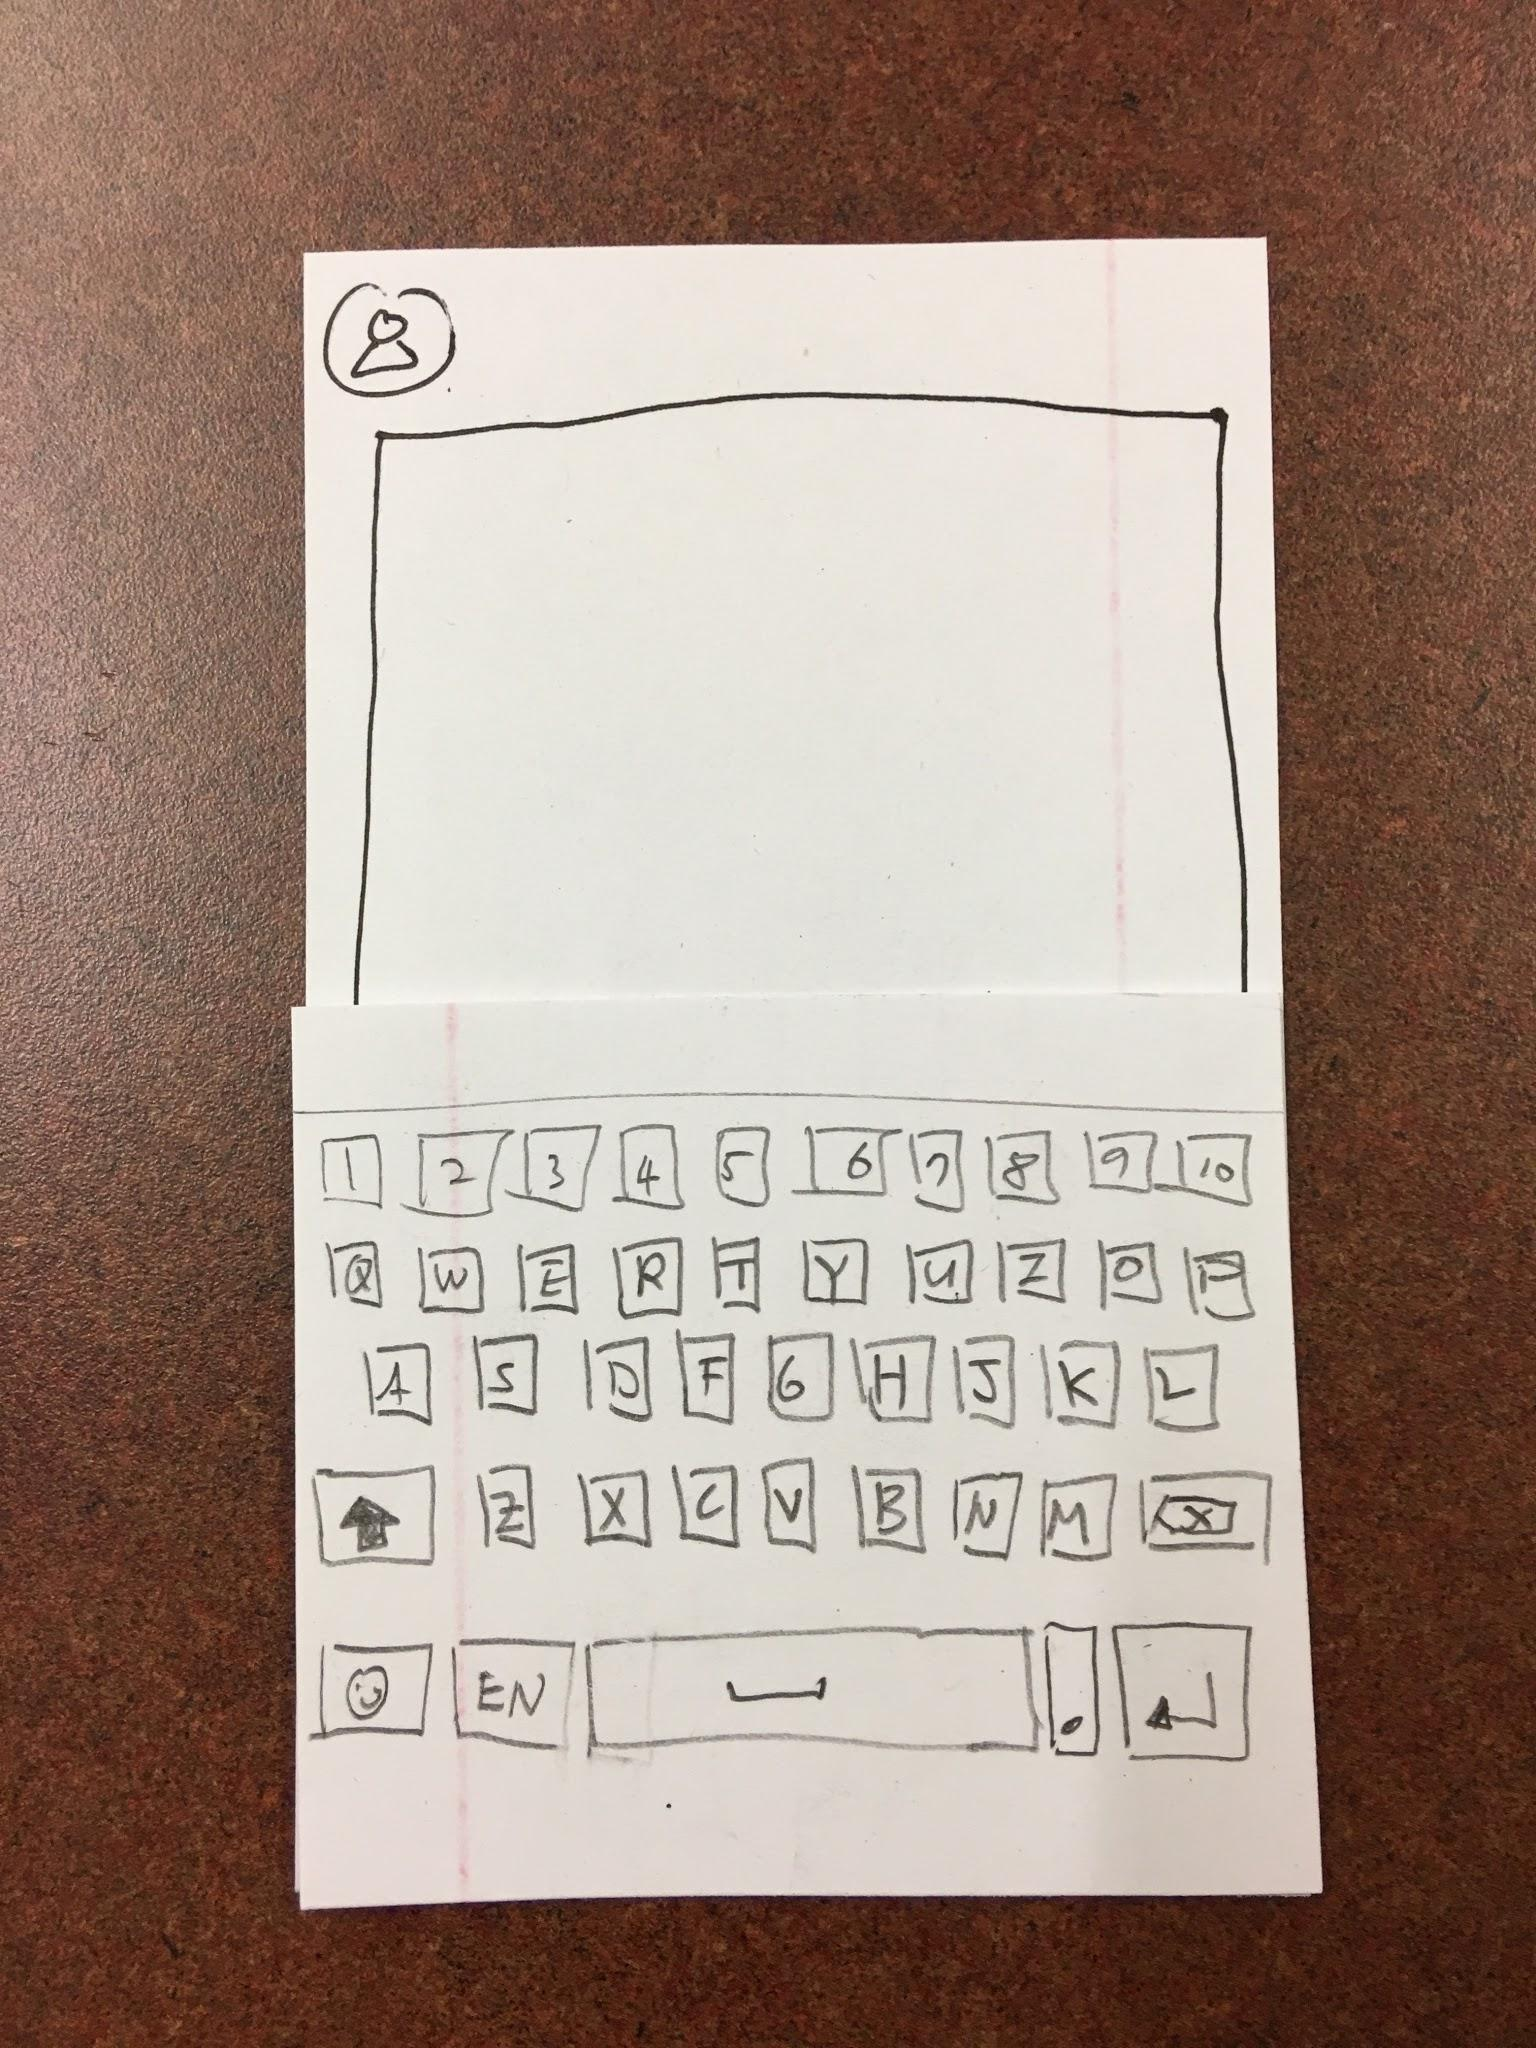 1 2 3 4 5 6 7 8 9 10
Q W E R T Y U I O P
A S D F G H J K L
Z X C V B N M X
EN .